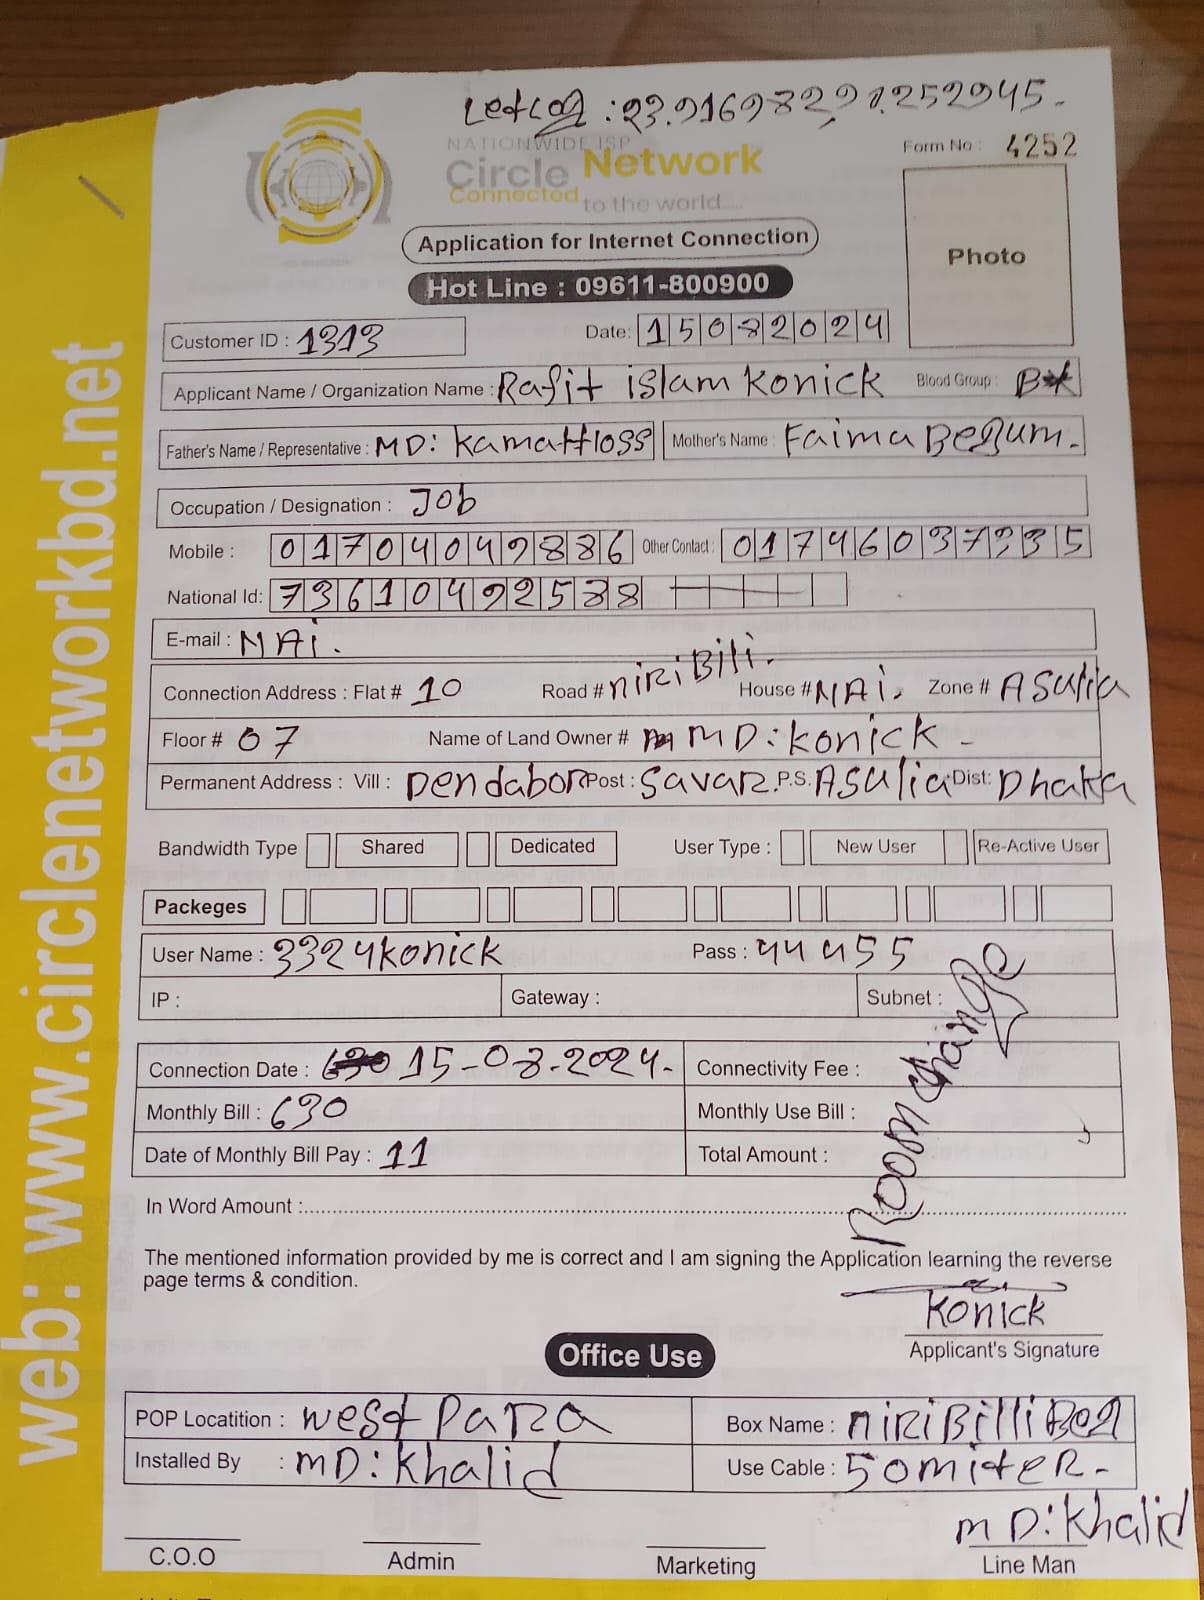 23.916982,90.252945.
NATIONWIDE ISP
Circle Network
Connected to the world....
Form No : 4252
Photo
Application for Internet Connection
Hot Line : 09611-800900
Customer ID : 1313
Date: 15082024
Applicant Name / Organization Name : Rafit islam Konick Blood Group :
Father's Name / Representative : MD: KamaHHoss Mother's Name : Faima Begum.
Occupation / Designation : Job
Mobile : 01704049886 Other Contact : 01746037235
National Id: 7361049258 8
E-mail : NAi.
Connection Address : Flat # 10 Road # niRiBili. House # NAi. Zone # Asulia
Floor # 07 Name of Land Owner # MD: Konick -
Permanent Address : Vill : Dendabor Post : Savar. P.S. Asulia Dist: Dhaka
Bandwidth Type Shared Dedicated User Type : New User Re-Active User
Packeges
User Name : 3324Konick Pass : 44455
IP : Gateway : Subnet :
Room change
Connection Date : 15-08-2024. Connectivity Fee :
Monthly Bill : 630 Monthly Use Bill :
Date of Monthly Bill Pay : 11 Total Amount :
In Word Amount :
The mentioned information provided by me is correct and I am signing the Application learning the reverse
page terms & condition.
Konick
Applicant's Signature
Office Use
POP Locatition : West Para Box Name : niRiBilli
Installed By : MD: Khalid Use Cable : 50 miteR -
MD: Khalid
C.O.O Admin Marketing Line Man
web: www.circlenetworkbd.net